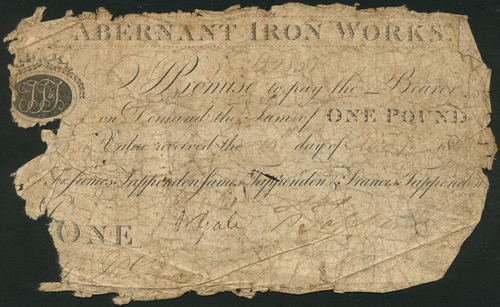 ABERNANT IRON WORKS.
I Promise to pay the Bearer
on Demand the Sum of ONE POUND
Value received the day of 18
For James Tappenden, James Tappenden & Francis Tappenden
ONE